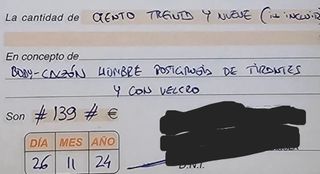 La cantidad de CIENTO TREINTA Y NUEVE (
En concepto de
BODY-CALZÓN HOMBRE POSTCIRUGÍA DE TIRANTES
Y CON VELCRO
Son # 139 # €
DÍA MES AÑO
26 11 24
D.N.I.